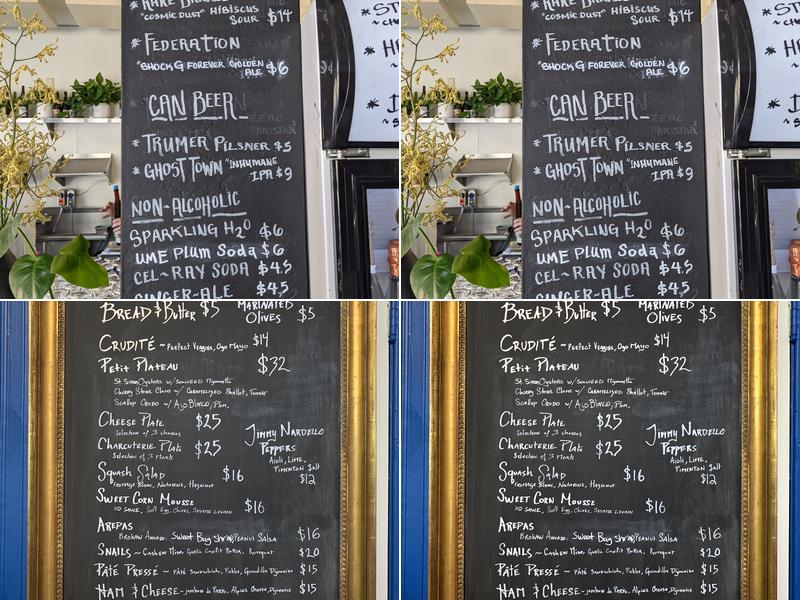 "COSMIC DUST" HIBISCUS
SOUR $14
* FEDERATION
"SHOCK G FOREVER GOLDEN
ALE $6
CAN BEER
* TRUMER PILSNER $5
* GHOST TOWN "INHUMANE
IPA $9
NON-ALCOHOLIC
SPARKLING H2O $6
UME PLUM SODA $6
CEL-RAY SODA $4.5
GINGER-ALE $4.5
"COSMIC DUST" HIBISCUS
SOUR $14
* FEDERATION
"SHOCK G FOREVER GOLDEN
ALE $6
CAN BEER
* TRUMER PILSNER $5
* GHOST TOWN "INHUMANE
IPA $9
NON-ALCOHOLIC
SPARKLING H2O $6
UME PLUM SODA $6
CEL-RAY SODA $4.5
GINGER-ALE $4.5
BREAD & Butter $5 MARINATED
OLIVES $5
CRUDITÉ ~ Perfect Veggies, Mayo $14
Petit Plateau $32
St. Simon Oysters w/ Seaweed Mignonette
Cherry Stone Clams w/ Caramelized Shallot, Tomato
Scallop Crudo w/ Ajo Blanco, Plum
Cheese Plate $25
Selection of 3 cheeses
Charcuterie Plate $25
Selection of 3 Meats
Jimmy Nardello
Peppers
Aioli, Lime,
Pimenton Salt
$12
Squash Salad $16
Fromage Blanc, Nectarine, Hazelnut
Sweet Corn Mousse $16
XO Sauce, Soft Egg, Chives, Sesame
AREPAS $16
Sweet Bay Shrimp, Peanut Salsa
SNAILS ~ Garlic Confit Butter, Kumquat $20
PÂTÉ PRESSÉ ~ Pâté Sandwiche, Pickles, Dijonnaise $15
HAM & CHEESE - Jambon de Paris, Alpine Cheese, Dijonnaise $15
BREAD & Butter $5 MARINATED
OLIVES $5
CRUDITÉ ~ Perfect Veggies, Mayo $14
Petit Plateau $32
St. Simon Oysters w/ Seaweed Mignonette
Cherry Stone Clams w/ Caramelized Shallot, Tomato
Scallop Crudo w/ Ajo Blanco, Plum
Cheese Plate $25
Selection of 3 cheeses
Charcuterie Plate $25
Selection of 3 Meats
Jimmy Nardello
Peppers
Aioli, Lime,
Pimenton Salt
$12
Squash Salad $16
Fromage Blanc, Nectarine, Hazelnut
Sweet Corn Mousse $16
XO Sauce, Soft Egg, Chives, Sesame
AREPAS $16
Sweet Bay Shrimp, Peanut Salsa
SNAILS ~ Garlic Confit Butter, Kumquat $20
PÂTÉ PRESSÉ ~ Pâté Sandwiche, Pickles, Dijonnaise $15
HAM & CHEESE - Jambon de Paris, Alpine Cheese, Dijonnaise $15